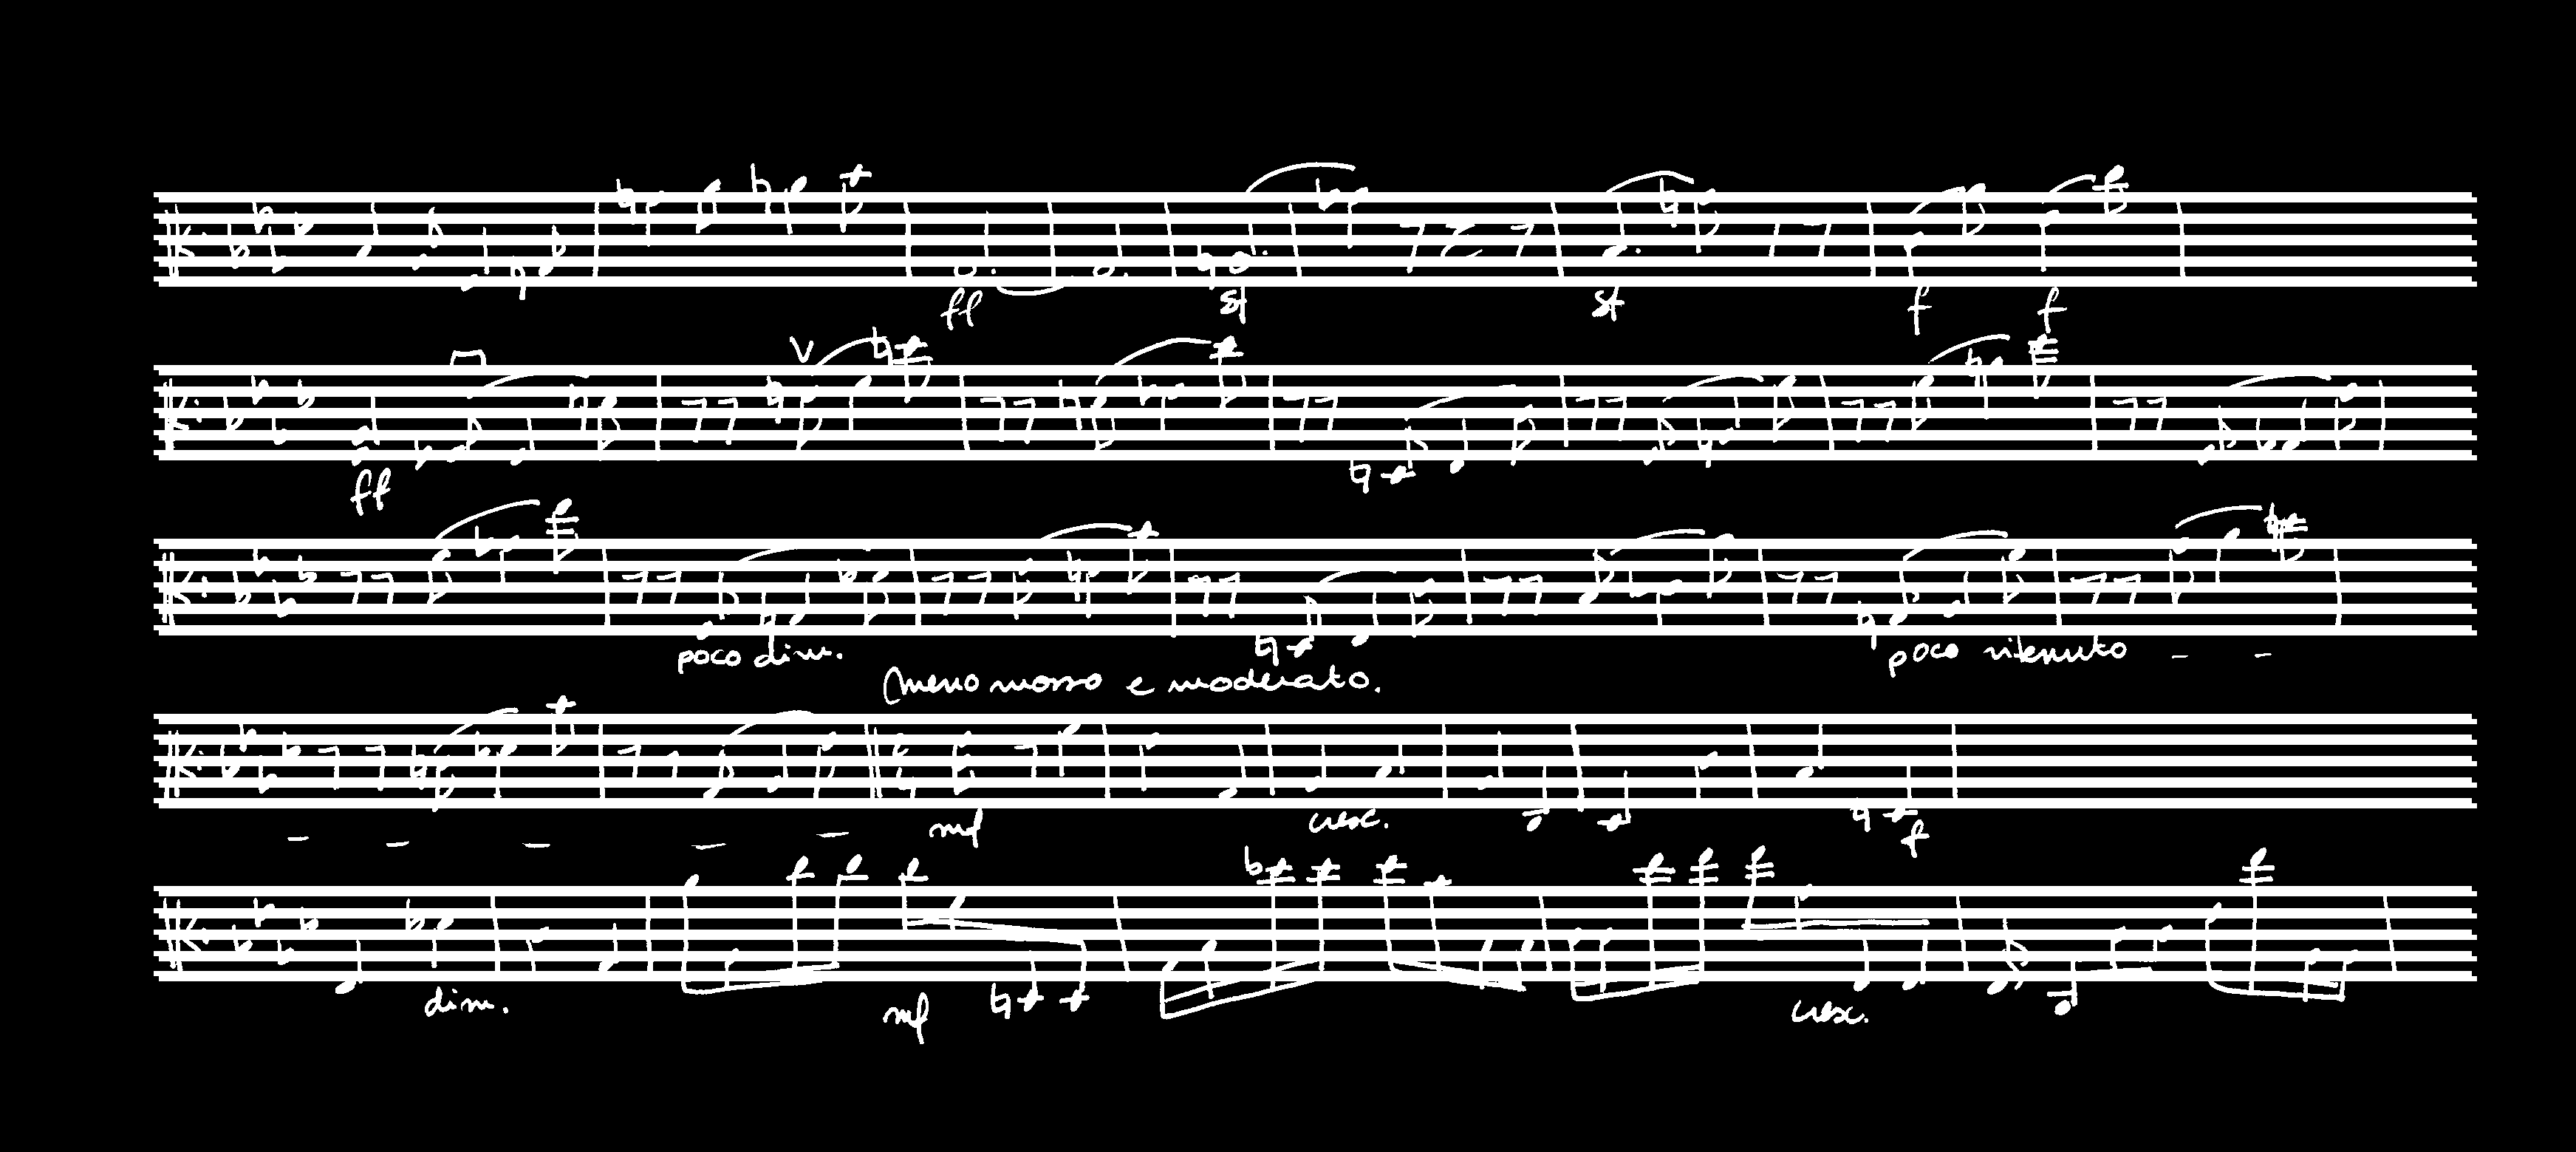 ff sf sf f f
V
ff
poco dim. poco ritenuto - -
Meno mosso e moderato.
- - - - -
mf cresc. f
dim. mf cresc.